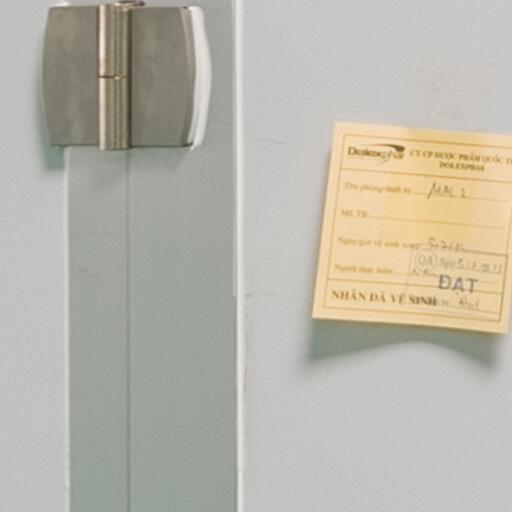 Dolexphar CT CP DƯỢC PHẨM QUỐC T
DOLEXPHAR
Tên phòng/thiết bị: MAL 2
Mã TB:
Ngày/giờ vệ sinh xong:
QA
Người thực hiện:
ĐẠT
NHÃN ĐÃ VỆ SINH